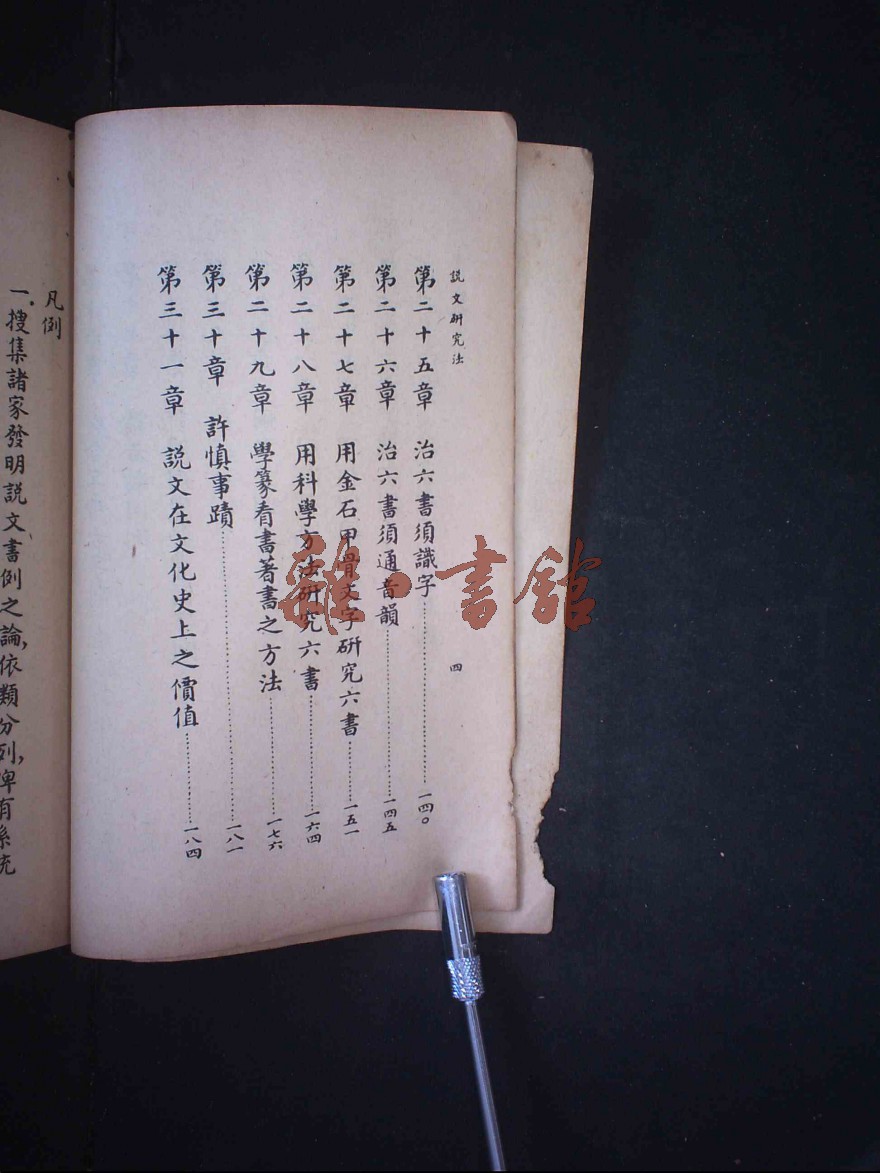 説文研究法
四
第二十五章　治六書須識字…………一四〇
第二十六章　治六書須通音韻…………一四五
第二十七章　用金石甲骨文字研究六書…………一五一
第二十八章　用科學方法研究六書…………一六四
第二十九章　學篆看書著書之方法…………一七六
第三十章　許慎事蹟…………一八一
第三十一章　説文在文化史上之價值…………一八四
凡例
一.搜集諸家發明説文書例之論,依類分列,俾有系統
雜·書館